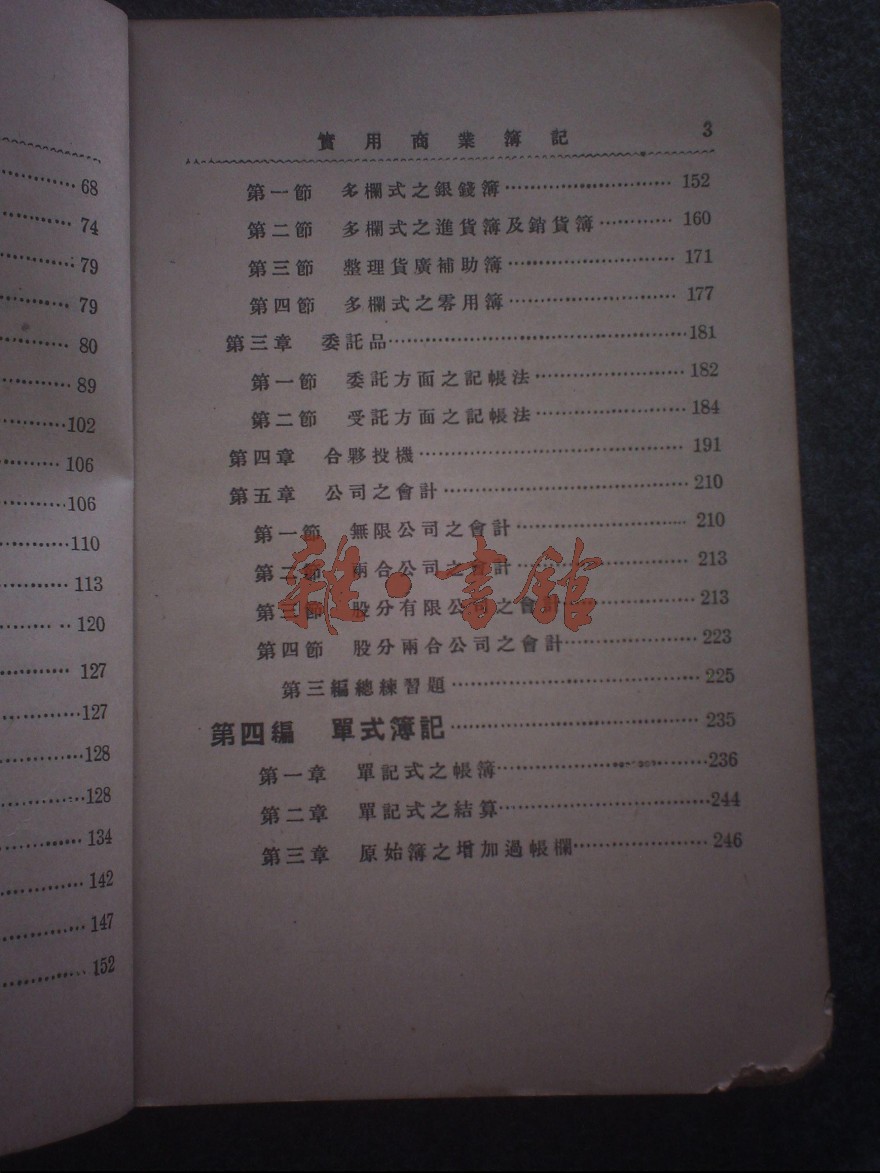 68
74
79
79
80
89
102
106
106
110
113
120
127
127
128
128
134
142
147
152
實用商業簿記 3
第一節 多欄式之銀錢簿 152
第二節 多欄式之進貨簿及銷貨簿 160
第三節 整理貨廣補助簿 171
第四節 多欄式之零用簿 177
第三章 委託品 181
第一節 委託方面之記帳法 182
第二節 受託方面之記帳法 184
第四章 合夥投機 191
第五章 公司之會計 210
第一節 無限公司之會計 210
第二節 兩合公司之會計 213
第三節 股分有限公司之會計 213
第四節 股分兩合公司之會計 223
第三編總練習題 225
第四編 單式簿記 235
第一章 單記式之帳簿 236
第二章 單記式之結算 244
第三章 原始簿之增加過帳欄 246
雜·書館